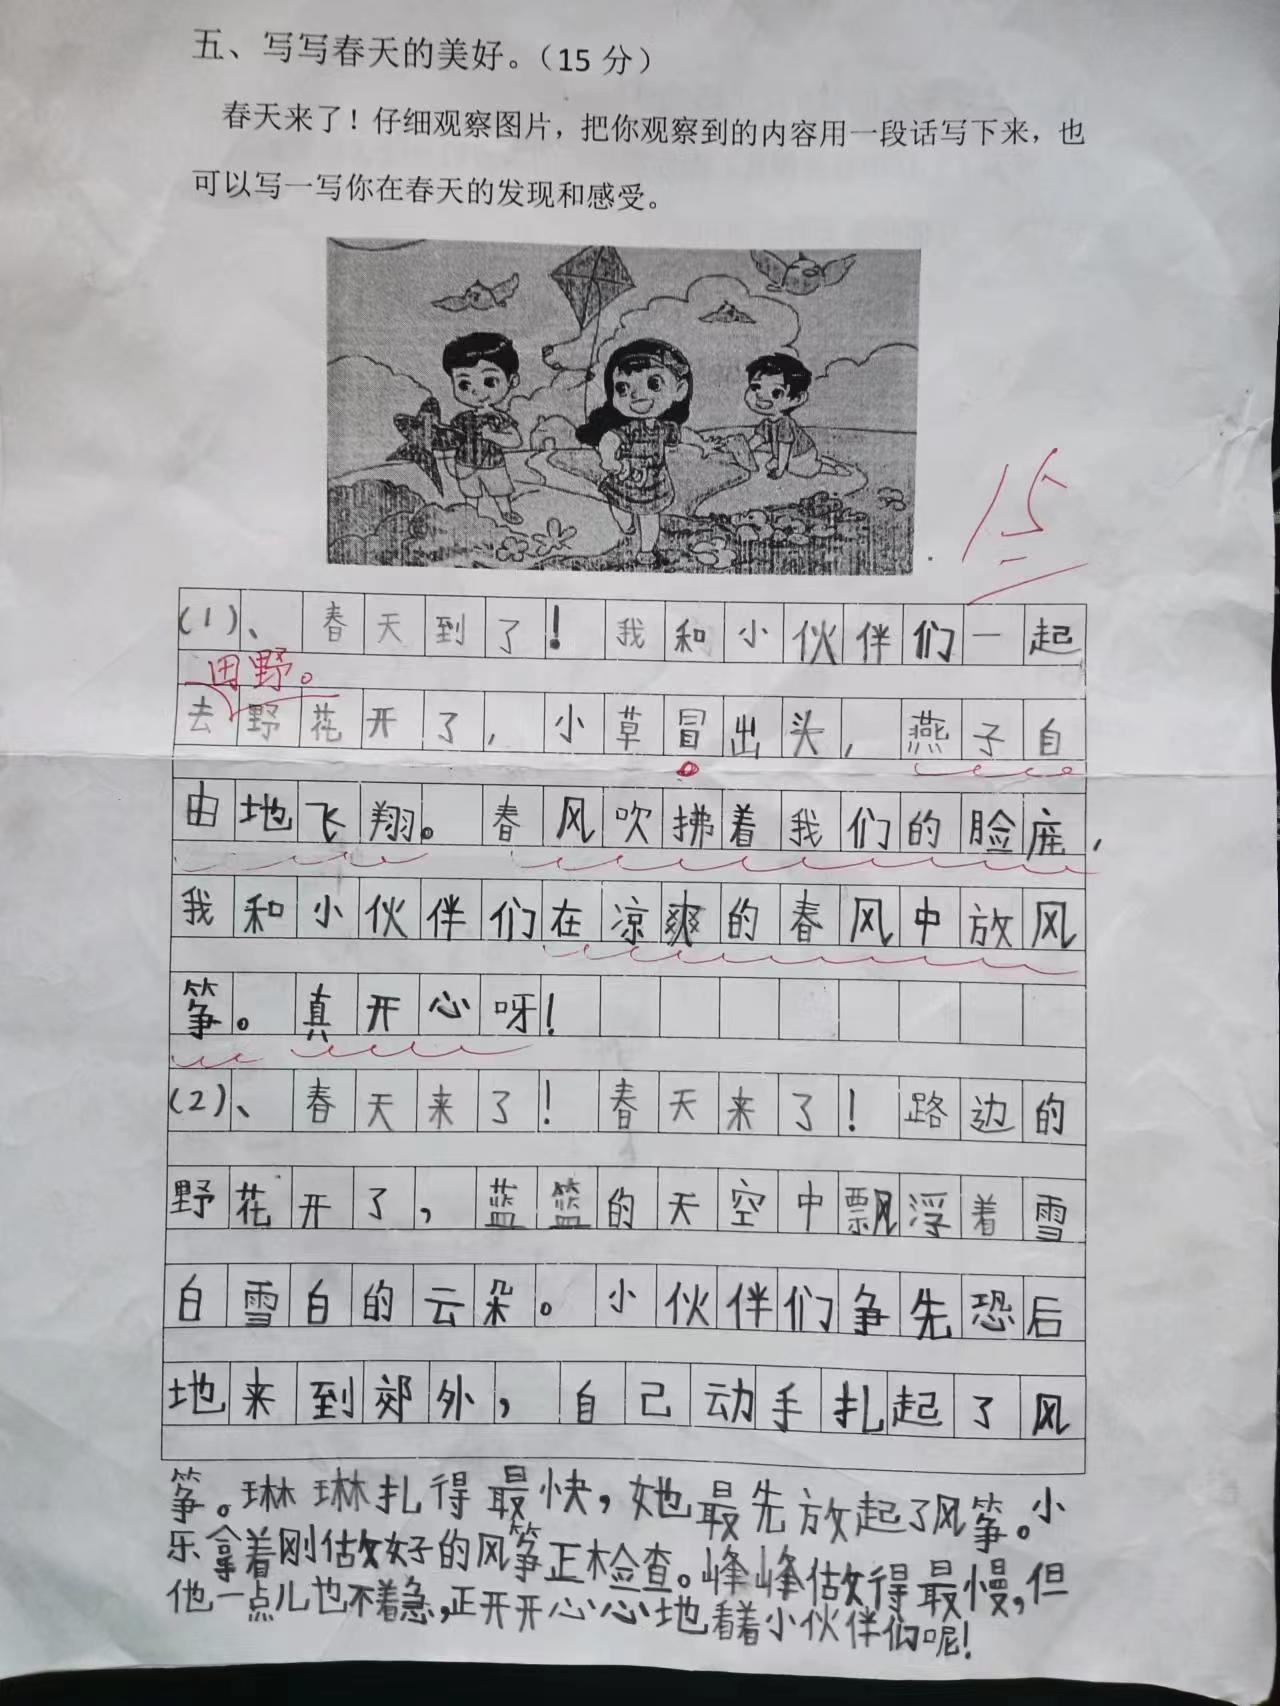 五、写写春天的美好。（15 分）
春天来了！仔细观察图片，把你观察到的内容用一段话写下来，也
可以写一写你在春天的发现和感受。
15
(1)、春天到了！我和小伙伴们一起
田野。
去野花开了，小草冒出头，燕子自
由地飞翔。春风吹拂着我们的脸庞，
我和小伙伴们在凉爽的春风中放风
筝。真开心呀！
(2)、春天来了！春天来了！路边的
野花开了，蓝篮的天空中飘浮着雪
白雪白的云朵。小伙伴们争先恐后
地来到郊外，自己动手扎起了风
筝。琳琳扎得最快，她最先放起了风筝。小
乐拿着刚做好的风筝正检查。峰峰做得最慢，但
他一点儿也不着急，正开开心心地看着小伙伴们呢！